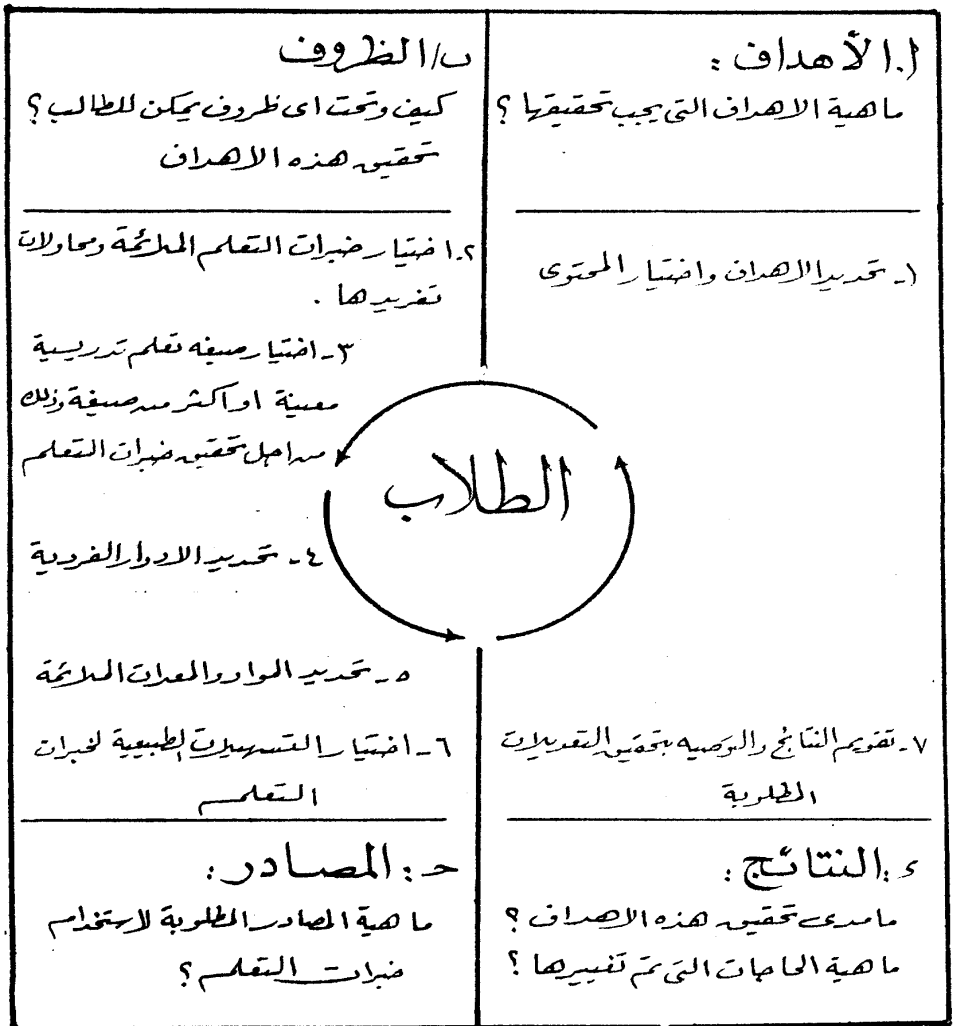 أ. الأهداف :
ماهية الاهداف التي يجب تحقيقها ؟
١- تحديد الاهداف واختيار المحتوى
ب/ الظروف
كيف وتحت اى ظروف يمكن للطالب ؟
تحقيق هذه الاهداف
٢. اختيار خبرات التعلم الملائمة ومحاولات
تفريدها .
٣- اختيار صيغه تعلم تدريسية
معينة او اكثر من صيغة وذلك
من اجل تحقيق خبرات التعلم
الطلاب
٤- تحديد الادوار الفردية
٥- تحديد المواد والمعدات الملائمة
٦- اختيار التسهيلات الطبيعية لخبرات
التعلم
حـ : المصادر :
ما هية المصادر المطلوبة لاستخدام
خبرات التعلم ؟
٧- تقويم النتائج والتوصيه بتحقيق التعديلات
المطلوبة
ء : النتائج :
مامدى تحقيق هذه الاهداف ؟
ماهية الحاجات التى تم تغييرها ؟